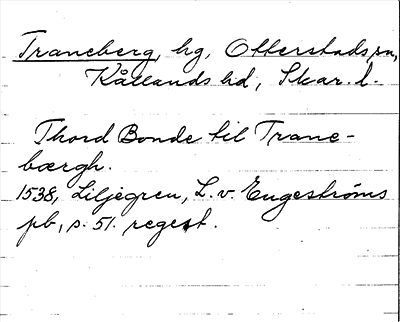 Traneberg, hg, Otterstads sn,
Kållands hd, Skar. l.
Thord Bonde til Trane-
bærgh.
1538, Liljegren, L. v. Engeströms
pb, s. 51. regest.